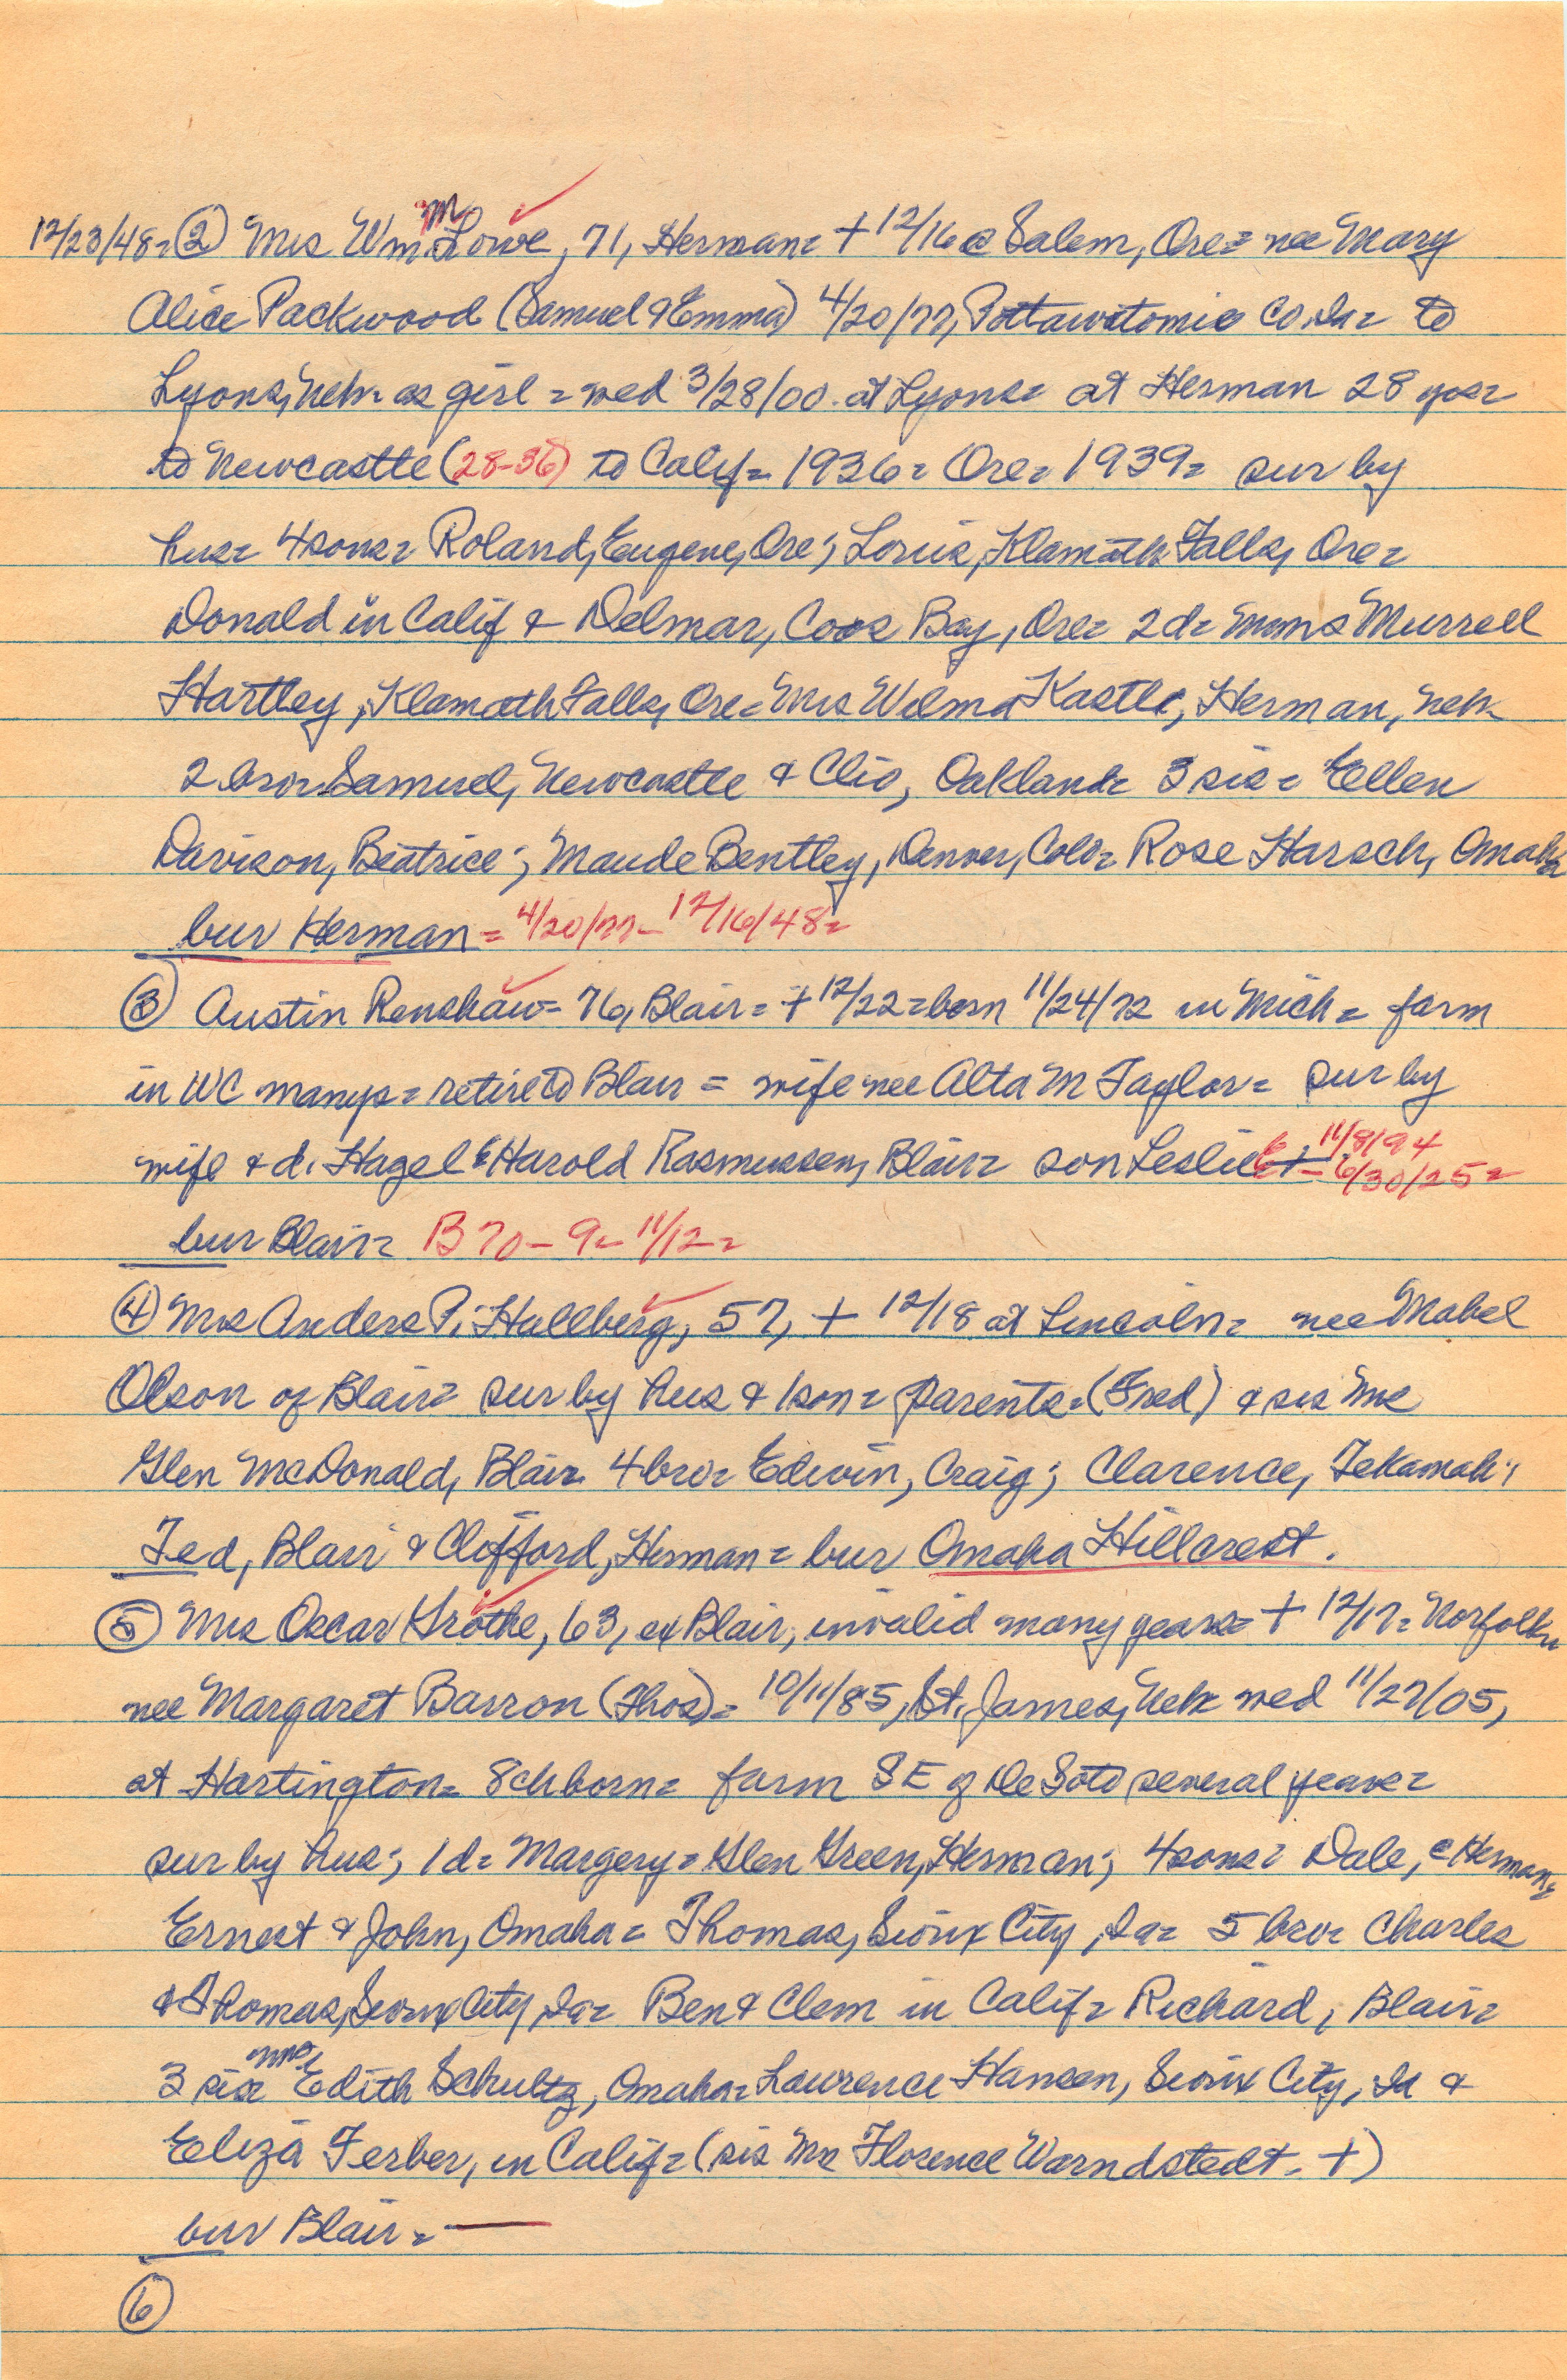 12/23/48= ② Mrs Wm. M Lowe, 71, Herman= + 12/16 @ Salem, Ore= nee Mary
Alice Packwood (Samuel & Emma) 4/20/77, Pottawatomie Co. Ia= to
Lyons, Neb= as girl = wed 3/28/00. at Lyons= at Herman 28 yrs=
to Newcastle (28-36) to Calif= 1936= Ore= 1939= sur by
hus= 4 sons= Roland, Eugene, Ore; Loris, Klamath Falls, Ore=
Donald in Calif & Delmar, Coos Bay, Ore= 2 d= Mrs Murrell
Hartley, Klamath Falls, Ore= Mrs Wilma Kastle, Herman, Neb=
2 bro= Samuel, Newcastle & Clio, Oakland= 3 sis= Ellen
Davison, Beatrice; Maude Bentley, Denver, Colo= Rose Harsch, Omaha
bur Herman = 4/20/77 - 12/16/48=
③ Austin Renshaw= 76, Blair= + 12/22= born 11/24/72 in Mich= farm
in WC many= retire to Blair = wife nee Alta M Taylor= sur by
wife & d. Hazel & Harold Rasmussen, Blair= son Leslie 11/8/94
- 6/30/25=
bur Blair= B 70 - 9 - 11/12=
④ Mrs Anders P. Hallberg, 57, + 12/18 at Lincoln= nee Mabel
Olson of Blair= sur by hus & 1 son= parents= (Fred) & sis Mrs
Glen McDonald, Blair= 4 bro= Edwin, Craig; Clarence, Tekamah;
Ted, Blair & Clifford, Herman= bur Omaha Hillcrest.
⑤ Mrs Oscar Grothe, 63, ex Blair, invalid many years= + 12/17= Norfolk=
nee Margaret Barron (Thos)= 10/11/85, St. James, Neb= wed 11/27/05,
at Hartington= 8 ch born= farm SE of De Soto several years=
sur by hus; 1 d= Margery= Glen Green, Herman; 4 sons= Dale, @ Herman,
Ernest & John, Omaha= Thomas, Sioux City, Ia= 5 bro= Charles
& Thomas, Sioux City, Ia= Ben & Clem in Calif= Richard, Blair=
3 sis= Mrs Edith Schultz, Omaha= Laurence Hansen, Sioux City, Ia &
Eliza Ferber, in Calif= (sis Mrs Florence Warndstedt - +)
bur Blair= —
⑥